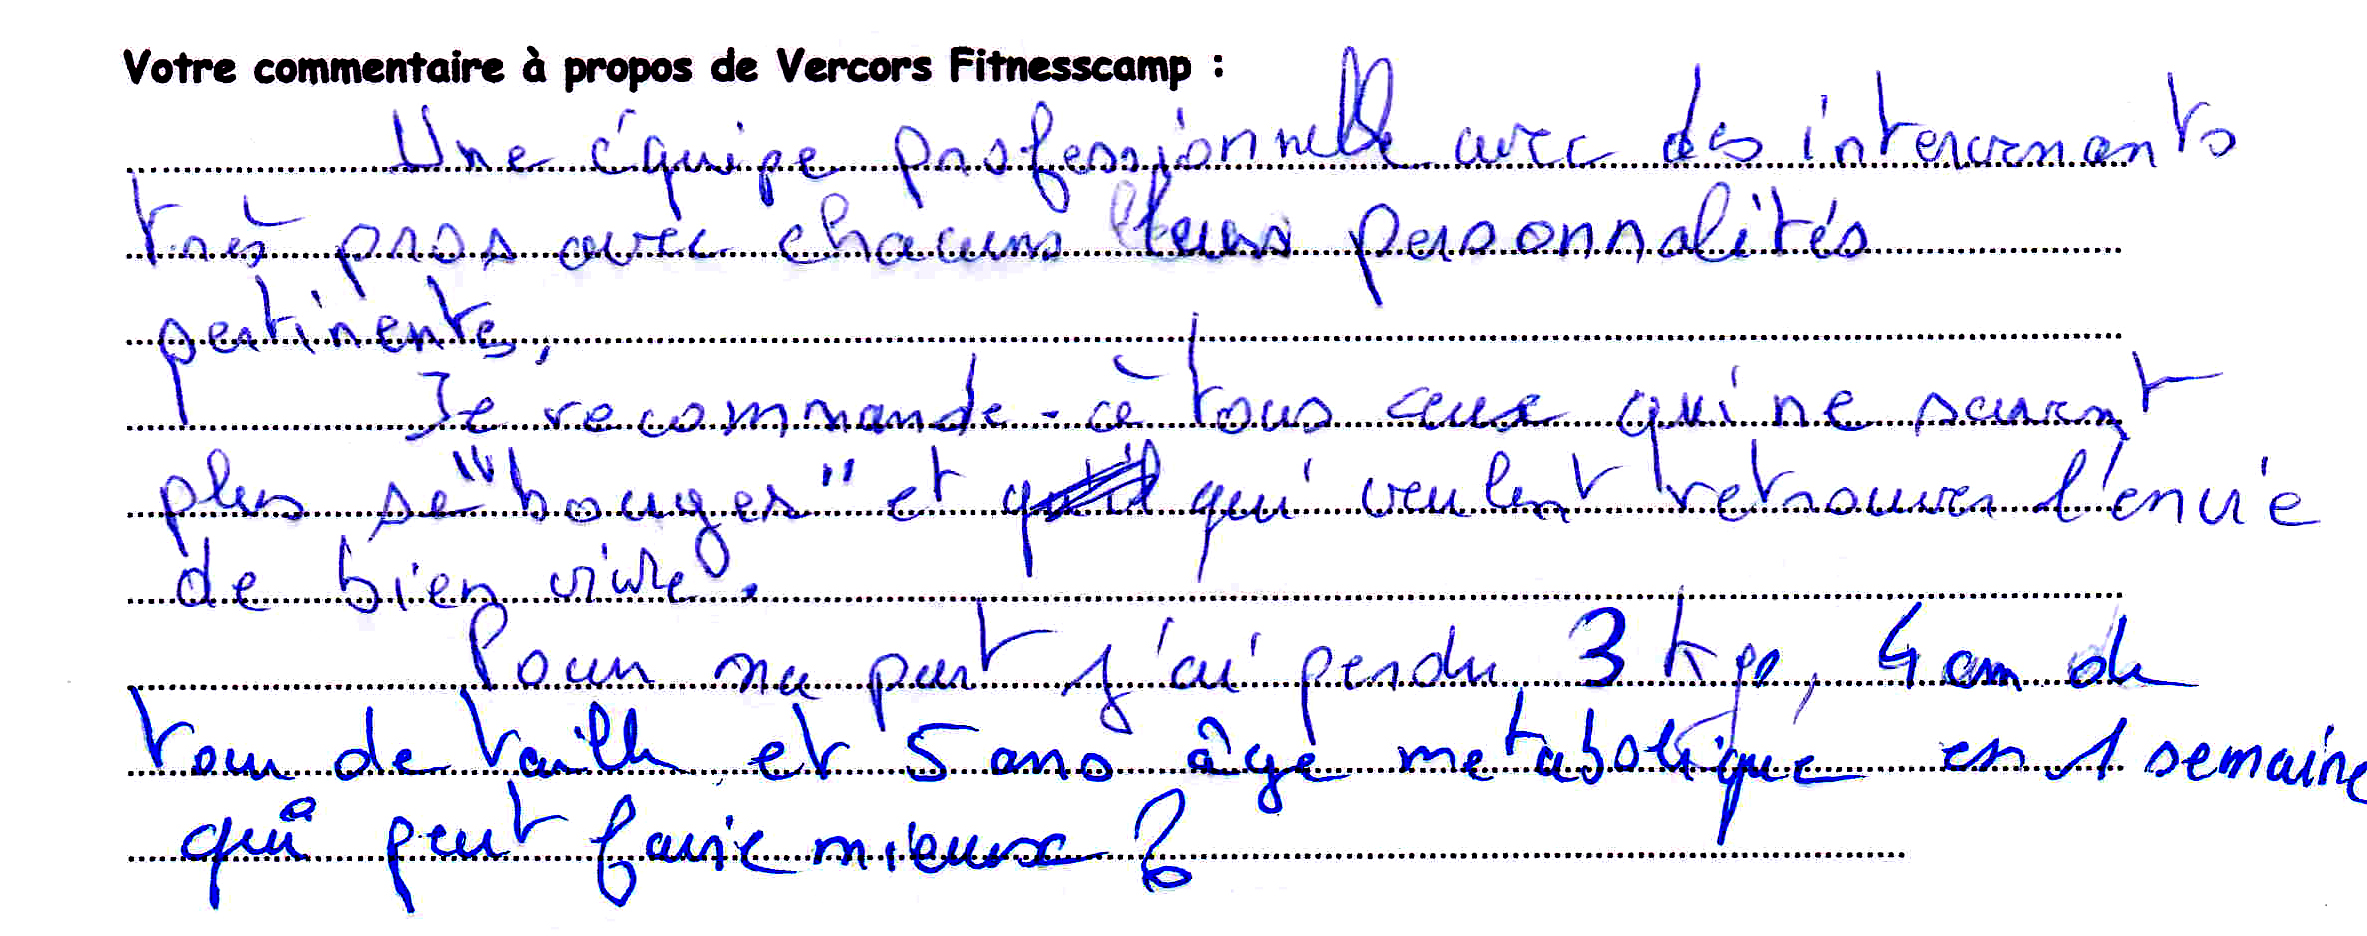 Votre commentaire à propos de Vercors Fitnesscamp :
Une équipe professionnelle avec des intervenants
très pros avec chacuns leurs personnalités
pertinentes,
Je recommande - à tous ceux qui ne savent
plus se "bouger" et qui veulent retrouver l'envie
de bien vivre.
Pour ma part j'ai perdu 3 kgs, 4 cm de
tour de taille et 5 ans âge metabolique en 1 semaine
qui peut faire mieux ?